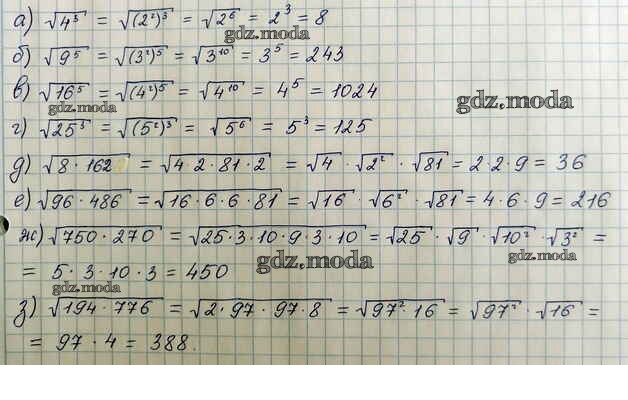 а) √4³ = √(2²)³ = √2⁶ = 2³ = 8
gdz.moda
б) √9⁵ = √(3²)⁵ = √3¹⁰ = 3⁵ = 243
в) √16⁵ = √(4²)⁵ = √4¹⁰ = 4⁵ = 1024
gdz.moda
gdz.moda
г) √25³ = √(5²)³ = √5⁶ = 5³ = 125
д) √8 · 162 = √4 · 2 · 81 · 2 = √4 · √2² · √81 = 2 · 2 · 9 = 36
е) √96 · 486 = √16 · 6 · 6 · 81 = √16 · √6² · √81 = 4 · 6 · 9 = 216
ж) √750 · 270 = √25 · 3 · 10 · 9 · 3 · 10 = √25 · √9 · √10² · √3² =
gdz.moda
gdz.moda
= 5 · 3 · 10 · 3 = 450
gdz.moda
з) √194 · 776 = √2 · 97 · 97 · 8 = √97² · 16 = √97² · √16 =
= 97 · 4 = 388.